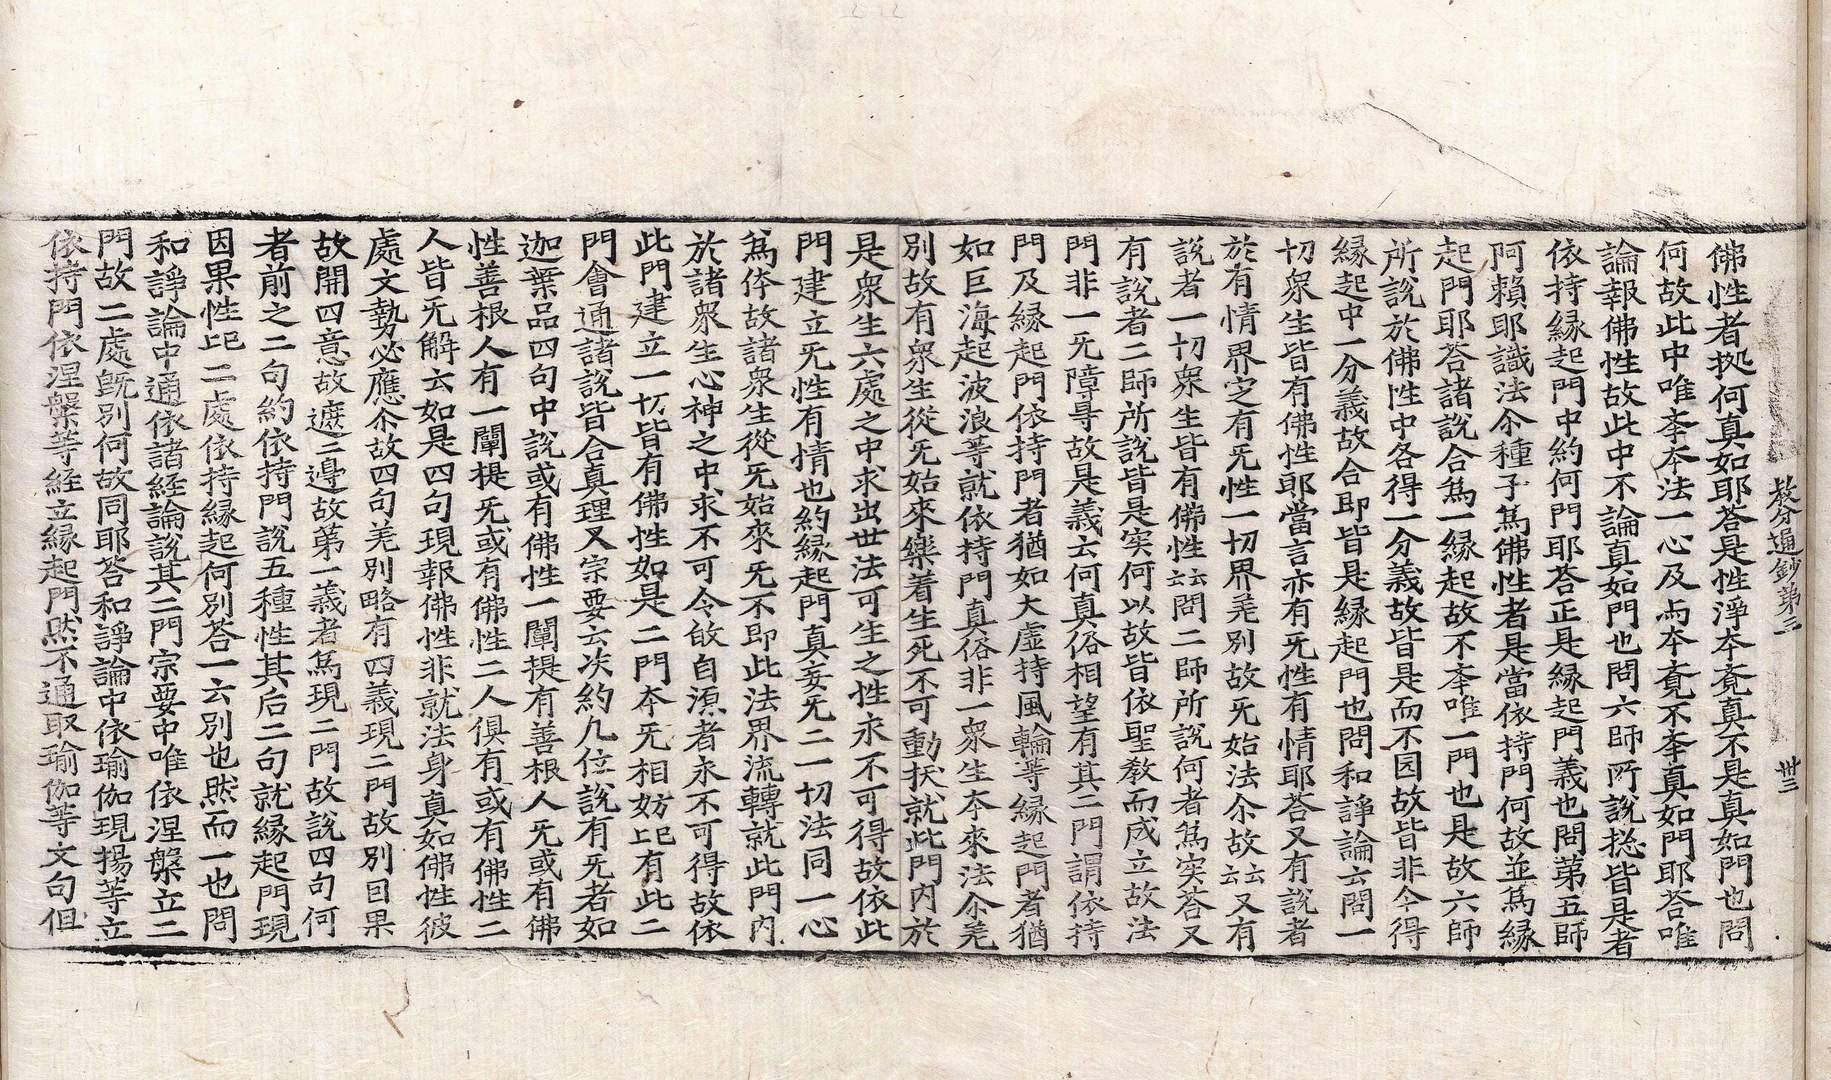 教分通鈔第三　卅三
佛性者㩀何真如耶荅是性淨夲竟真不是真如門也問
何故此中唯夲夲法一心及而夲竟不夲真如門耶荅唯
論報佛性故此中不論真如門也問六師所說捴皆是者
依持縁起門中約何門耶荅正是縁起門義也問第五師
阿賴耶識法尒種子爲佛性者是當依持門何故並爲縁
起門耶荅諸說合爲一縁起故不夲唯一門也是故六師
所說於佛性中各得一分義故皆是而不因故皆非今得
縁起中一分義故合即皆是縁起門也問和諍論云問一
切衆生皆有佛性耶當言亦有旡性有情耶荅又有說者
於有情界定有旡性一切界𦍌別故旡始法尒故云云又有
說者一切衆生皆有佛性云云問二師所說何者爲実荅又
有說者二師所說皆是実何以故皆依聖敎而成立故法
門非一旡障㝵故是義云何真俗相望有其二門謂依持
門及縁起門依持門者猶如大虛持風輪等縁起門者猶
如巨海起波浪等就依持門真俗非一衆生夲來法尒𦍌
別故有衆生從旡始來樂着生死不可動㧞就此門内於
是衆生六處之中求出世法可生之性永不可得故依此
門建立旡性有情也約縁起門真妄旡二一切法同一心
爲体故諸衆生從旡始來旡不即此法界流轉就此門内
於諸衆生心神之中求不可令故自源者永不可得故依
此門建立一切皆有佛性如是二門夲旡相妨㠯有此二
門會通諸說皆合真理又宗要云次約几位說有旡者如
迦葉品四句中說或有佛性一闡提有善根人旡或有佛
性善根人有一闡提旡或有佛性二人俱有或有佛性二
人皆旡解云如是四句現報佛性非就法身真如佛性彼
處文勢必應尒故四句𦍌別略有四義現二門故別因果
故開四意故遮二邊故第一義者爲現二門故說四句何
者前之二句約依持門說五種性其后二句就縁起門現
因果性㠯二處依持縁起何別荅一云別也然而一也問
和諍論中通依諸經論說其二門宗要中唯依涅槃立二
門故二處旣別何故同耶荅和諍論中依瑜伽現揚等立
依持門依涅槃等経立縁起門然不通取瑜伽等文句但